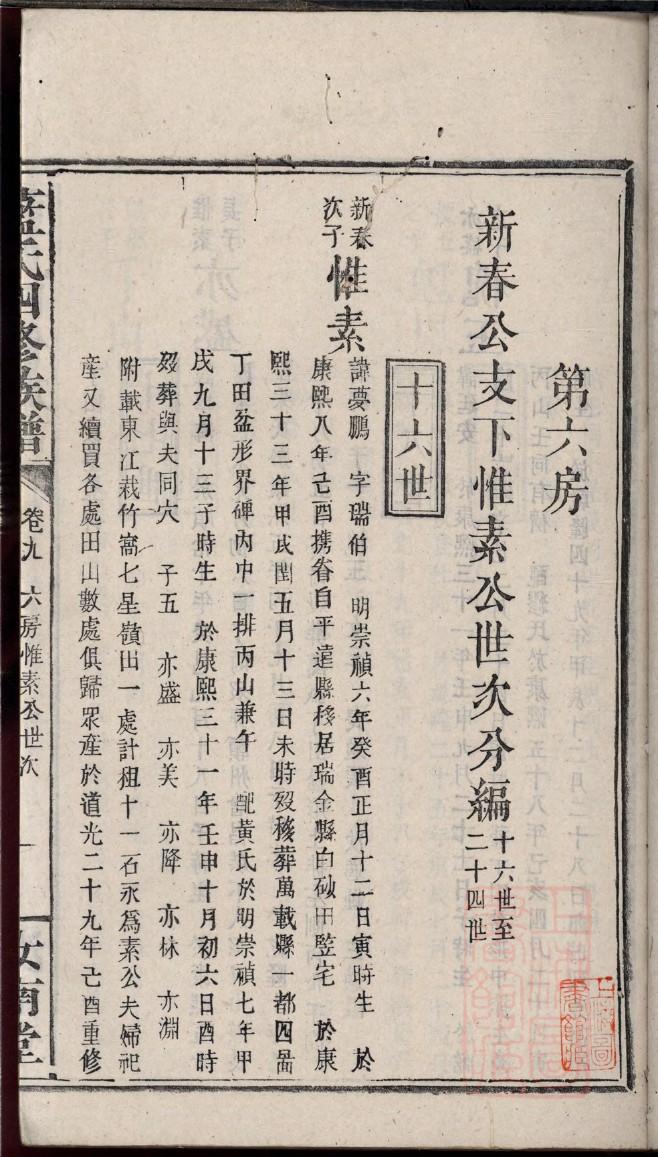 第六房
新春公支下惟素公世次分編 十六世至
二十四世
十六世
新春
次子
惟素
諱夢鵬 字瑞伯 明崇禎六年癸酉正月十二日寅時生 於
康熙八年己酉携眷自平遠縣移居瑞金縣白砂田監宅 於康
熙三十三年甲戌閏五月十三日未時歿移葬萬載縣一都四啚
丁田盆形界碑內中一排丙山兼午 配黃氏於明崇禎七年甲
戌九月十三子時生 於康熙三十一年壬申十月初六日酉時
歿葬與夫同穴 子五 亦盛 亦美 亦降 亦林 亦淵
附載東江栽竹窩七星嶺田一處計租十一石永爲素公夫婦祀
產又續買各處田山數處俱歸眾產於道光二十九年己酉重修
氏四修族譜
卷九 六房惟素公世次
一
汝南堂